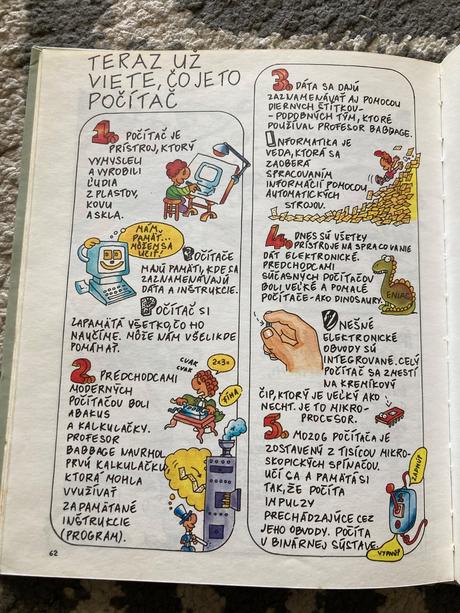 TERAZ UŽ
VIETE, ČO JE TO
POČÍTAČ
1. POČÍTAČ JE
PRÍSTROJ, KTORÝ
VYMYSLELI
A VYROBILI
ĽUDIA
Z PLASTOV,
KOVU
A SKLA.
MÁM
PAMÄŤ...
MÔŽEM SA
UČIŤ!
POČÍTAČE
MAJÚ PAMÄTI, KDE SA
ZAZNAMENÁVAJÚ
DÁTA A INŠTRUKCIE.
POČÍTAČ SI
ZAPAMÄTÁ VŠETKO, ČO HO
NAUČÍME. MÔŽE NÁM VŠELIKDE
POMÁHAŤ.
2. PREDCHODCAMI
MODERNÝCH
POČÍTAČOV BOLI
ABAKUS
A KALKULAČKY.
PROFESOR
BABBAGE NAVRHOL
PRVÚ KALKULAČKU,
KTORÁ MOHLA
VYUŽÍVAŤ
ZAPAMÄTANÉ
INŠTRUKCIE
(PROGRAM).
CVAK
CVAK
2×3=
ÍHA!
62
3. DÁTA SA DAJÚ
ZAZNAMENÁVAŤ AJ POMOCOU
DIERNYCH ŠTÍTKOV-
- PODOBNÝCH TÝM, KTORÉ
POUŽÍVAL PROFESOR BABBAGE.
INFORMATIKA JE
VEDA, KTORÁ SA
ZAOBERÁ
SPRACOVANÍM
INFORMÁCIÍ POMOCOU
AUTOMATICKÝCH
STROJOV.
4. DNES SÚ VŠETKY
PRÍSTROJE NA SPRACOVANIE
DÁT ELEKTRONICKÉ.
PREDCHODCAMI
SÚČASNÝCH POČÍTAČOV
BOLI VEĽKÉ A POMALÉ
POČÍTAČE - AKO DINOSAURY.
ENIAC
DNEŠNÉ
ELEKTRONICKÉ
OBVODY SÚ
INTEGROVANÉ. CELÝ
POČÍTAČ SA ZMESTÍ
NA KREMÍKOVÝ
ČIP, KTORÝ JE VEĽKÝ AKO
NECHT. JE TO MIKRO-
PROCESOR.
5. MOZOG POČÍTAČA JE
ZOSTAVENÝ Z TISÍCOV MIKRO-
SKOPICKÝCH SPÍNAČOV.
UČÍ SA A PAMÄTÁ SI
TAK, ŽE POČÍTA
IMPULZY
PRECHÁDZAJÚCE CEZ
JEHO OBVODY. POČÍTA
V BINÁRNEJ SÚSTAVE.
ZAPNÚŤ
VYPNÚŤ